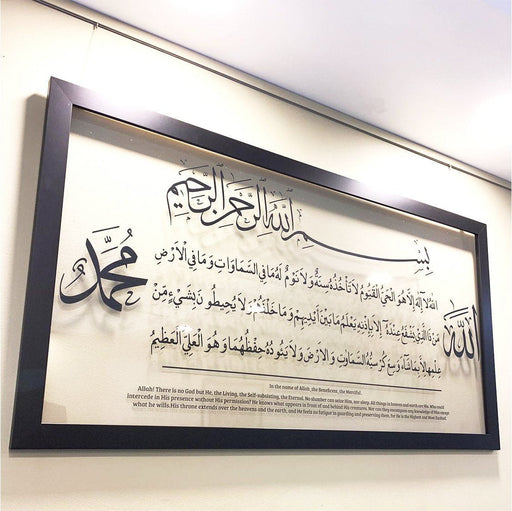 بِسْمِ اللَّهِ الرَّحْمَنِ الرَّحِيمِ
اللَّهُ لَا إِلَهَ إِلَّا هُوَ الْحَيُّ الْقَيُّومُ لَا تَأْخُذُهُ سِنَةٌ وَلَا نَوْمٌ لَهُ مَا فِي السَّمَاوَاتِ وَمَا فِي الْأَرْضِ
مَنْ ذَا الَّذِي يَشْفَعُ عِنْدَهُ إِلَّا بِإِذْنِهِ يَعْلَمُ مَا بَيْنَ أَيْدِيهِمْ وَمَا خَلْفَهُمْ وَلَا يُحِيطُونَ بِشَيْءٍ مِنْ
عِلْمِهِ إِلَّا بِمَا شَاءَ وَسِعَ كُرْسِيُّهُ السَّمَاوَاتِ وَالْأَرْضَ وَلَا يَئُودُهُ حِفْظُهُمَا وَهُوَ الْعَلِيُّ الْعَظِيمُ
الله
محمد
In the name of Allah, the Beneficent, the Merciful.
Allah! There is no God but He, the Living, the Self-subsisting, the Eternal. No slumber can seize Him, nor sleep. All things in heaven and earth are His. Who could
intercede in His presence without His permission? He knows what appears in front of and behind His creatures. Nor can they encompass any knowledge of Him except
what he wills. His throne extends over the heavens and the earth, and He feels no fatigue in guarding and preserving them, for He is the Highest and Most Exalted.